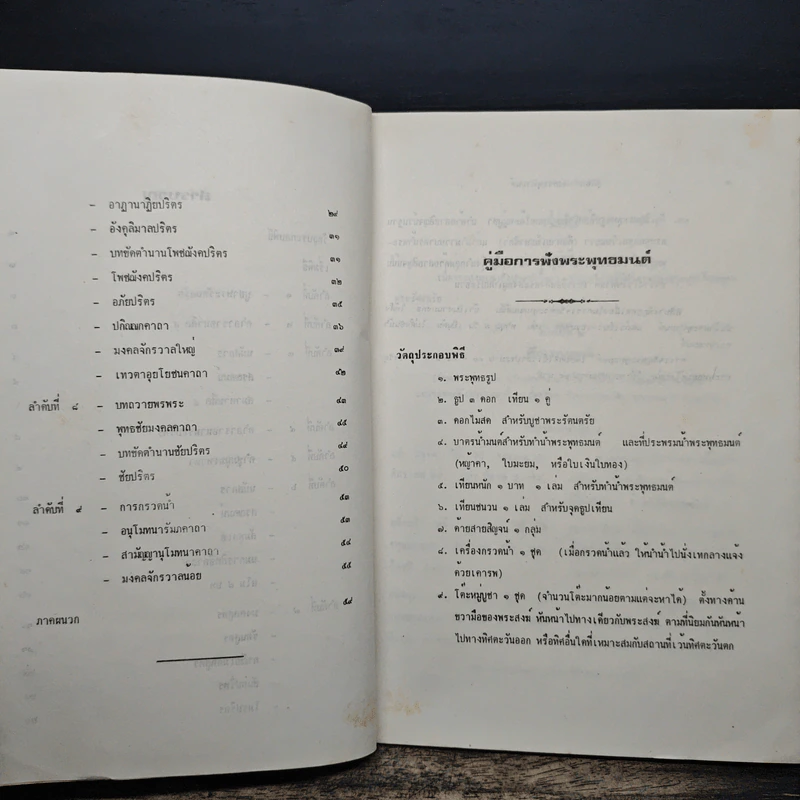 - อาฏานาฏิยปริตร ๒๙
- อังคุลิมาลปริตร ๓๑
- บทขัดตำนานโพชฌังคปริตร ๓๑
- โพชฌังคปริตร ๓๒
- อภัยปริตร ๓๕
- ปกิณณกคาถา ๓๖
- มงคลจักรวาลใหญ่ ๓๙
- เทวตาอุยโยชนคาถา ๔๒
ลำดับที่ ๘ - บทถวายพรพระ ๔๓
- พุทธชัยมงคลคาถา ๔๕
- บทขัดตำนานชัยปริตร ๔๙
- ชัยปริตร ๕๐
ลำดับที่ ๙ - การกรวดน้ำ ๕๓
- อนุโมทนารัมภคาถา ๕๓
- สามัญญานุโมทนาคาถา ๕๔
- มงคลจักรวาลน้อย ๕๕
ภาคผนวก ๕๙
คู่มือการฟังพระพุทธมนต์
วัตถุประกอบพิธี
๑. พระพุทธรูป
๒. ธูป ๓ ดอก เทียน ๑ คู่
๓. ดอกไม้สด สำหรับบูชาพระรัตนตรัย
๔. บาตรน้ำมนต์สำหรับทำน้ำพระพุทธมนต์ และที่ประพรมน้ำพระพุทธมนต์
(หญ้าคา, ใบมะยม, หรือใบเงินใบทอง)
๕. เทียนหนัก ๑ บาท ๑ เล่ม สำหรับทำน้ำพระพุทธมนต์
๖. เทียนชนวน ๑ เล่ม สำหรับจุดธูปเทียน
๗. ด้ายสายสิญจน์ ๑ กลุ่ม
๘. เครื่องกรวดน้ำ ๑ ชุด (เมื่อกรวดน้ำแล้ว ให้นำน้ำไปนั่งเทกลางแจ้ง
ด้วยเคารพ)
๙. โต๊ะหมู่บูชา ๑ ชุด (จำนวนโต๊ะมากน้อยตามแต่จะหาได้) ตั้งทางด้าน
ขวามือของพระสงฆ์ หันหน้าไปทางเดียวกับพระสงฆ์ ตามที่นิยมกันหันหน้า
ไปทางทิศตะวันออก หรือทิศอื่นใดที่เหมาะสมกับสถานที่เว้นทิศตะวันตก